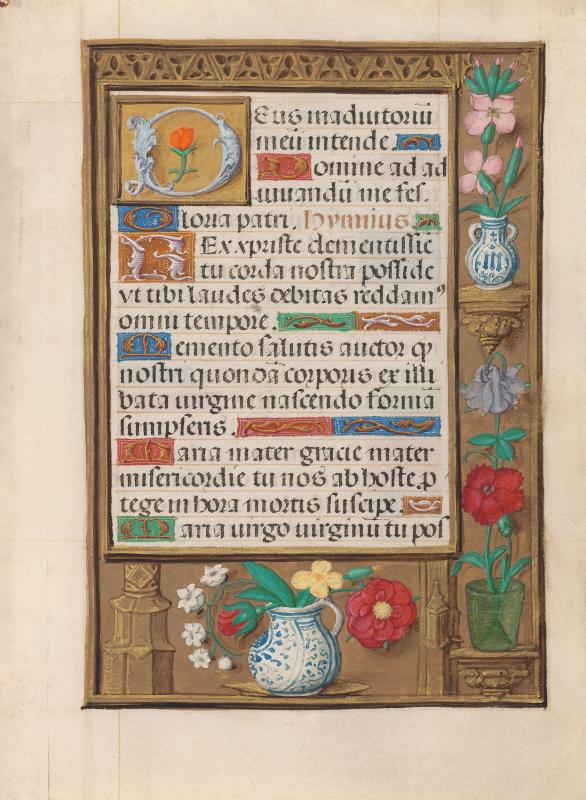 Deus in adiutoriū
meū intende.
Domine ad ad
iuuandū me fes.
Gloria patri. Hymnus.
Rex xp̄riste clementissie
tu corda nostra posside
vt tibi laudes debitas reddamꝰ
omni tempore.
Memento salutis auctor ꝙ
nostri quondā corporis ex illi
bata uirgine nascendo formā
sumpseris.
Maria mater gracie mater
misericordie tu nos ab hoste ꝓ
tege in hora mortis suscipe.
Maria uirgo uirginū tu pos